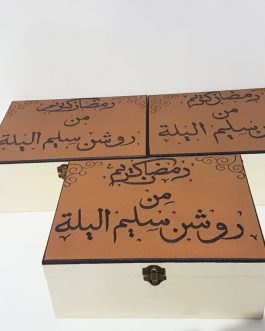 رمضان كريم
من
روشن سليم اليلة
رمضان كريم
من
روشن سليم اليلة
رمضان كريم
من
روشن سليم اليلة